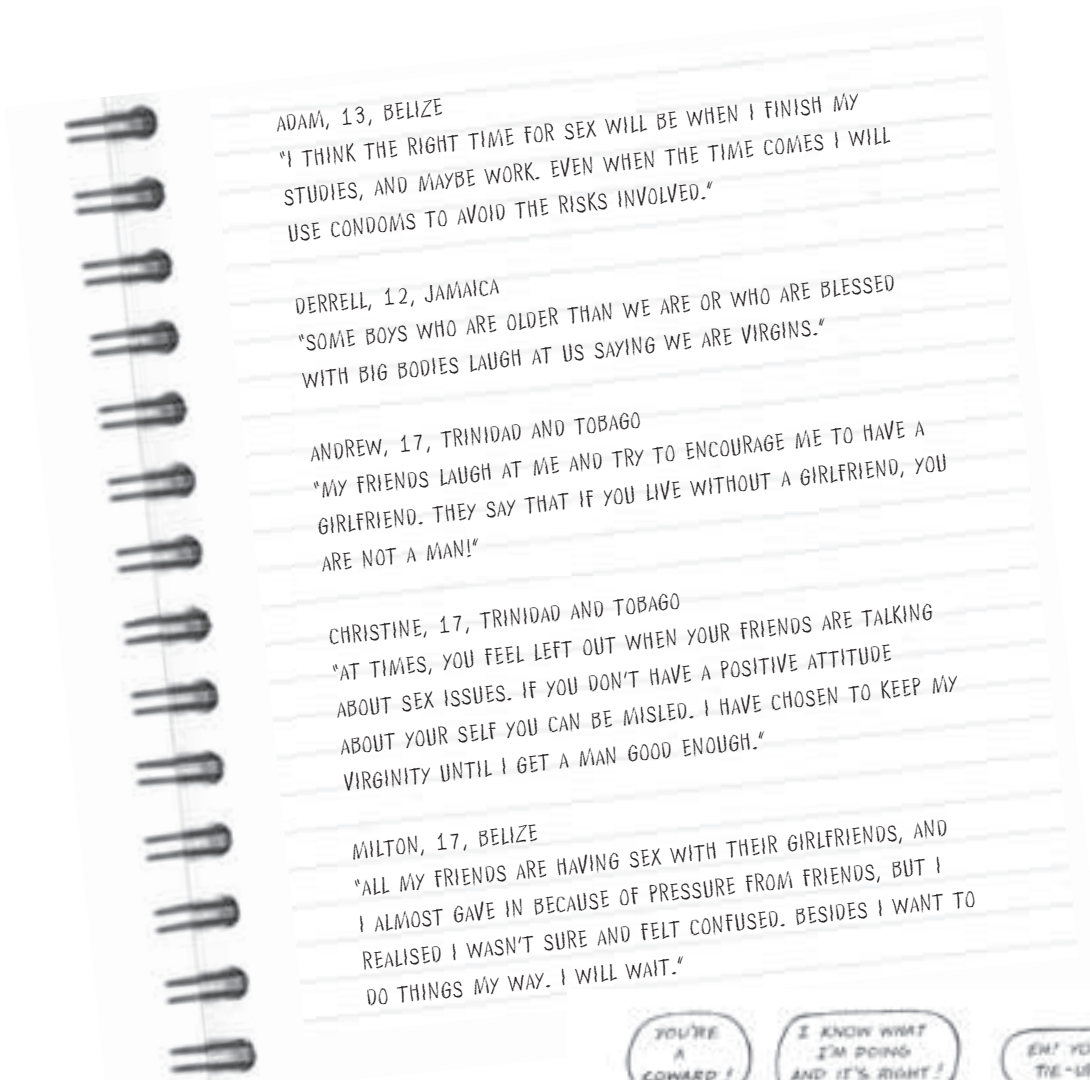 ADAM, 13, BELIZE
"I THINK THE RIGHT TIME FOR SEX WILL BE WHEN I FINISH MY
STUDIES, AND MAYBE WORK. EVEN WHEN THE TIME COMES I WILL
USE CONDOMS TO AVOID THE RISKS INVOLVED."
DERRELL, 12, JAMAICA
"SOME BOYS WHO ARE OLDER THAN WE ARE OR WHO ARE BLESSED
WITH BIG BODIES LAUGH AT US SAYING WE ARE VIRGINS."
ANDREW, 17, TRINIDAD AND TOBAGO
"MY FRIENDS LAUGH AT ME AND TRY TO ENCOURAGE ME TO HAVE A
GIRLFRIEND. THEY SAY THAT IF YOU LIVE WITHOUT A GIRLFRIEND, YOU
ARE NOT A MAN!"
CHRISTINE, 17, TRINIDAD AND TOBAGO
"AT TIMES, YOU FEEL LEFT OUT WHEN YOUR FRIENDS ARE TALKING
ABOUT SEX ISSUES. IF YOU DON'T HAVE A POSITIVE ATTITUDE
ABOUT YOUR SELF YOU CAN BE MISLED. I HAVE CHOSEN TO KEEP MY
VIRGINITY UNTIL I GET A MAN GOOD ENOUGH."
MILTON, 17, BELIZE
"ALL MY FRIENDS ARE HAVING SEX WITH THEIR GIRLFRIENDS, AND
I ALMOST GAVE IN BECAUSE OF PRESSURE FROM FRIENDS, BUT I
REALISED I WASN'T SURE AND FELT CONFUSED. BESIDES I WANT TO
DO THINGS MY WAY. I WILL WAIT."
YOU'RE
A
COWARD!
I KNOW WHAT
I'M DOING
AND IT'S RIGHT!
EH!